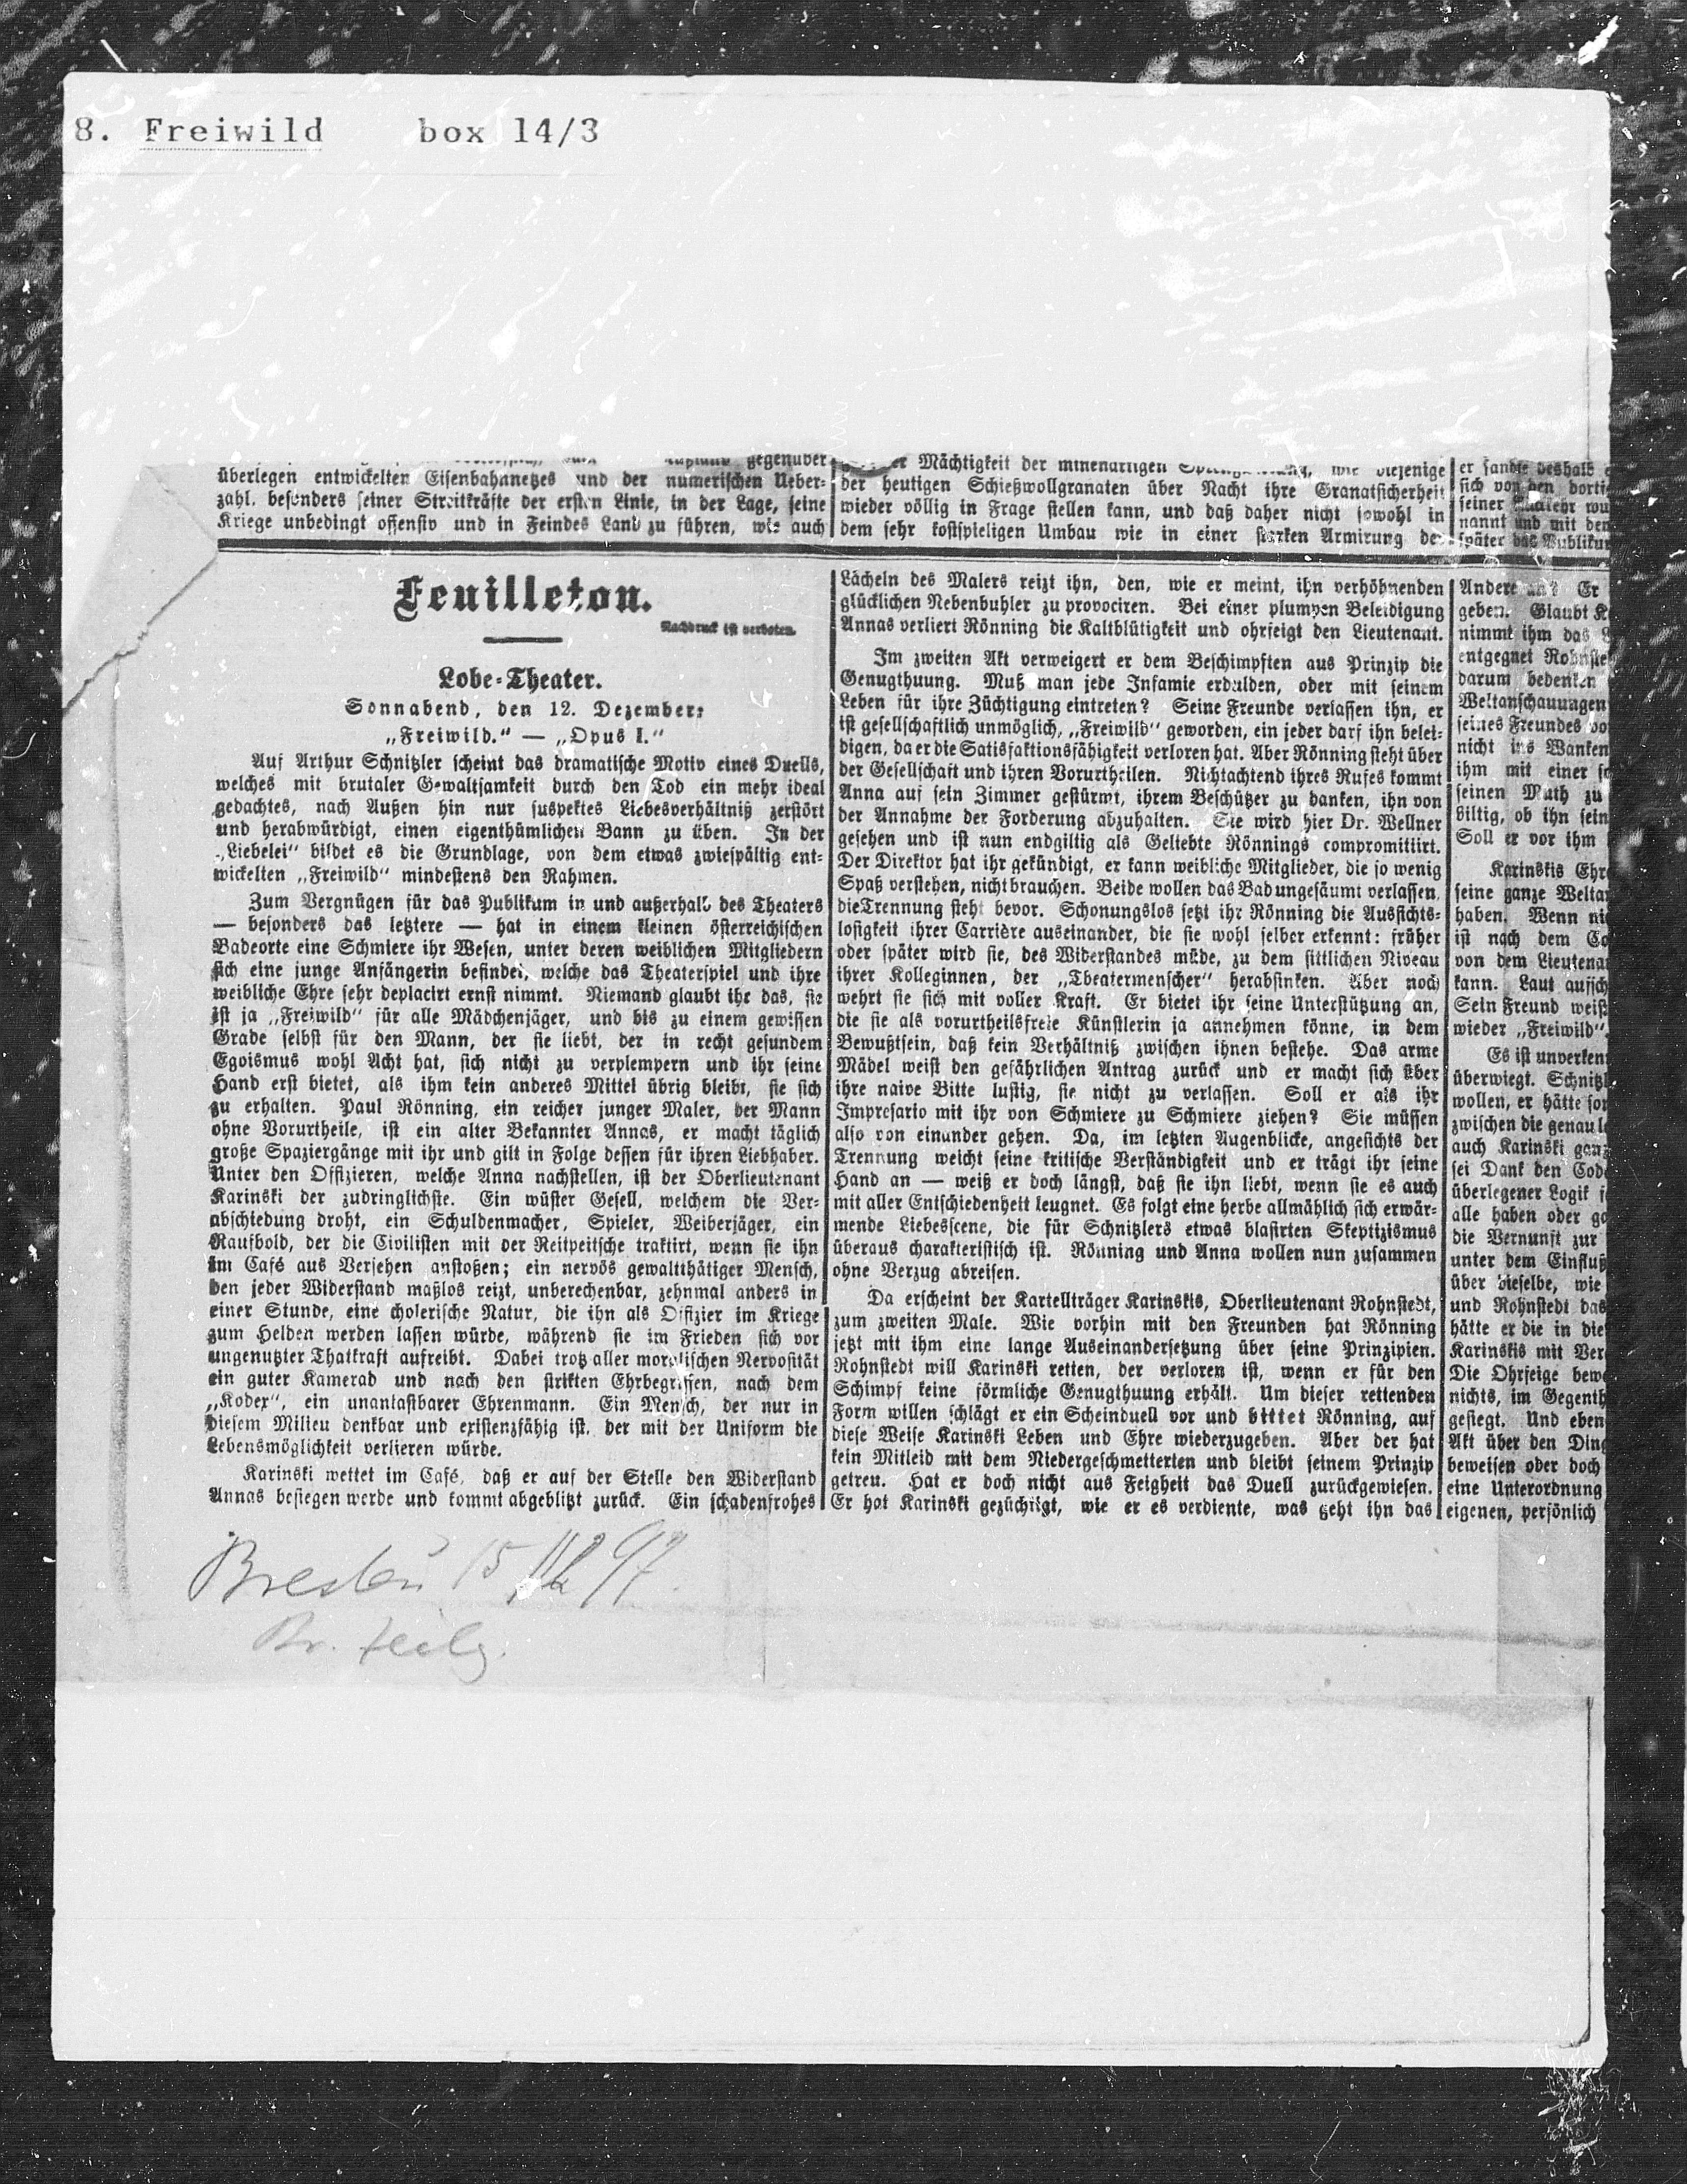 8. Freiwild box 14/3
gegenüber
überlegen entwickelten Eisenbahnnetzes und der numerischen Ueber-
zahl, besonders seiner Streitkräfte der ersten Linie, in der Lage, seine
Kriege unbedingt offensiv und in Feindes Land zu führen, wie auch
Mächtigkeit der minenartigen wie diejenige
der heutigen Schießwollgranaten über Nacht ihre Granatsicherheit
wieder völlig in Frage stellen kann, und daß daher nicht sowohl in
dem sehr kostspieligen Umbau wie in einer starken Armirung der
er sandte deshalb
sich von den dorti
seiner wu
nannt und mit den
später das Publikum
Feuilleton.
Nachdruck ist verboten.
Lobe-Theater.
Sonnabend, den 12. Dezember:
„Freiwild.“ — „Opus I.“
Auf Arthur Schnitzler scheint das dramatische Motiv eines Duells,
welches mit brutaler Gewaltsamkeit durch den Tod ein mehr ideal
gedachtes, nach Außen hin nur suspektes Liebesverhältniß zerstört
und herabwürdigt, einen eigenthümlichen Bann zu üben. In der
„Liebelei“ bildet es die Grundlage, von dem etwas zwiespältig ent-
wickelten „Freiwild“ mindestens den Rahmen.
Zum Vergnügen für das Publikum in und außerhalb des Theaters
— besonders das letztere — hat in einem kleinen österreichischen
Badeorte eine Schmiere ihr Wesen, unter deren weiblichen Mitgliedern
sich eine junge Anfängerin befindet, welche das Theaterspiel und ihre
weibliche Ehre sehr deplacirt ernst nimmt. Niemand glaubt ihr das, sie
ist ja „Freiwild“ für alle Mädchenjäger, und bis zu einem gewissen
Grade selbst für den Mann, der sie liebt, der in recht gesundem
Egoismus wohl Acht hat, sich nicht zu verplempern und ihr seine
Hand erst bietet, als ihm kein anderes Mittel übrig bleibt, sie sich
zu erhalten. Paul Rönning, ein reicher junger Maler, der Mann
ohne Vorurtheile, ist ein alter Bekannter Annas, er macht täglich
große Spaziergänge mit ihr und gilt in Folge dessen für ihren Liebhaber.
Unter den Offizieren, welche Anna nachstellen, ist der Oberlieutenant
Karinski der zudringlichste. Ein wüster Gesell, welchem die Ver-
abschiedung droht, ein Schuldenmacher, Spieler, Weiberjäger, ein
Raufbold, der die Civilisten mit der Reitpeitsche traktirt, wenn sie ihn
im Café aus Versehen anstoßen; ein nervös gewaltthätiger Mensch,
den jeder Widerstand maßlos reizt, unberechenbar, zehnmal anders in
einer Stunde, eine cholerische Natur, die ihn als Offizier im Kriege
zum Helden werden lassen würde, während sie im Frieden sich vor
ungenutzter Thatkraft aufreibt. Dabei trotz aller moralischen Nervosität
ein guter Kamerad und nach den strikten Ehrbegriffen, nach dem
„Kodex“, ein unantastbarer Ehrenmann. Ein Mensch, der nur in
diesem Milieu denkbar und existenzfähig ist, der mit der Uniform die
Lebensmöglichkeit verlieren würde.
Karinski wettet im Café, daß er auf der Stelle den Widerstand
Annas besiegen werde und kommt abgeblitzt zurück. Ein schadenfrohes
Lächeln des Malers reizt ihn, den, wie er meint, ihn verhöhnenden
glücklichen Nebenbuhler zu provociren. Bei einer plumpen Beleidigung
Annas verliert Rönning die Kaltblütigkeit und ohrfeigt den Lieutenant.
Im zweiten Akt verweigert er dem Beschimpften aus Prinzip die
Genugthuung. Muß man jede Infamie erdulden, oder mit seinem
Leben für ihre Züchtigung eintreten? Seine Freunde verlassen ihn, er
ist gesellschaftlich unmöglich, „Freiwild“ geworden, ein jeder darf ihn belei-
digen, da er die Satisfaktionsfähigkeit verloren hat. Aber Rönning steht über
der Gesellschaft und ihren Vorurtheilen. Nichtachtend ihres Rufes kommt
Anna auf sein Zimmer gestürmt, ihrem Beschützer zu danken, ihn von
der Annahme der Forderung abzuhalten. Sie wird hier Dr. Wellner
gesehen und ist nun endgiltig als Geliebte Rönnings compromittirt.
Der Direktor hat ihr gekündigt, er kann weibliche Mitglieder, die so wenig
Spaß verstehen, nicht brauchen. Beide wollen das Bad ungesäumt verlassen,
die Trennung steht bevor. Schonungslos setzt ihr Rönning die Aussichts-
losigkeit ihrer Carrière auseinander, die sie wohl selber erkennt: früher
oder später wird sie, des Widerstandes müde, zu dem sittlichen Niveau
ihrer Kolleginnen, der „Theatermenscher“ herabsinken. Aber noch
wehrt sie sich mit voller Kraft. Er bietet ihr seine Unterstützung an,
die sie als vorurtheilsfreie Künstlerin ja annehmen könne, in dem
Bewußtsein, daß kein Verhältniß zwischen ihnen bestehe. Das arme
Mädel weist den gefährlichen Antrag zurück und er macht sich über
ihre naive Bitte lustig, sie nicht zu verlassen. Soll er als ihr
Impresario mit ihr von Schmiere zu Schmiere ziehen? Sie müssen
also von einander gehen. Da, im letzten Augenblicke, angesichts der
Trennung weicht seine kritische Verständigkeit und er trägt ihr seine
Hand an — weiß er doch längst, daß sie ihn liebt, wenn sie es auch
mit aller Entschiedenheit leugnet. Es folgt eine herbe allmählich sich erwär-
mende Liebesscene, die für Schnitzlers etwas blasirten Skeptizismus
überaus charakteristisch ist. Rönning und Anna wollen nun zusammen
ohne Verzug abreisen.
Da erscheint der Kartellträger Karinskis, Oberlieutenant Rohnstedt,
zum zweiten Male. Wie vorhin mit den Freunden hat Rönning
jetzt mit ihm eine lange Auseinandersetzung über seine Prinzipien.
Rohnstedt will Karinski retten, der verloren ist, wenn er für den
Schimpf keine förmliche Genugthuung erhält. Um dieser rettenden
Form willen schlägt er ein Scheinduell vor und bittet Rönning, auf
diese Weise Karinski Leben und Ehre wiederzugeben. Aber der hat
kein Mitleid mit dem Niedergeschmetterten und bleibt seinem Prinzip
getreu. Hat er doch nicht aus Feigheit das Duell zurückgewiesen.
Er hat Karinski gezüchtigt, wie er es verdiente, was geht ihn das
Andere an? Er
geben. Glaubt K
nimmt ihm das
entgegnet Rohnste
darum bedenken
Weltanschauungen
seines Freundes vo
nicht ins Wanken
ihm mit einer sc
seinen Muth zu
biltig, ob ihn sein
Soll er vor ihm
Karinskis Ehr
seine ganze Weltan
haben. Wenn ni
ist nach dem Co
von dem Lieutenan
kann. Laut aufsch
Sein Freund weiß
wieder „Freiwild“.
Es ist unverken
überwiegt. Schnitzl
wollen, er hätte son
zwischen die genau
auch Karinski ganz
sei Dank den Cod
überlegener Logik f
alle haben oder ge
die Vernunft zur
unter dem Einfluß
über dieselbe, wie
und Rohnstedt das
hätte er die in die
Karinskis mit Ver
Die Ohrfeige bewe
nichts, im Gegenth
gesiegt. Und eben
Akt über den Ding
beweisen oder doch
eine Unterordnung
eigenen, persönlich
Breslau 15/12 97.
Br. Zeitg.